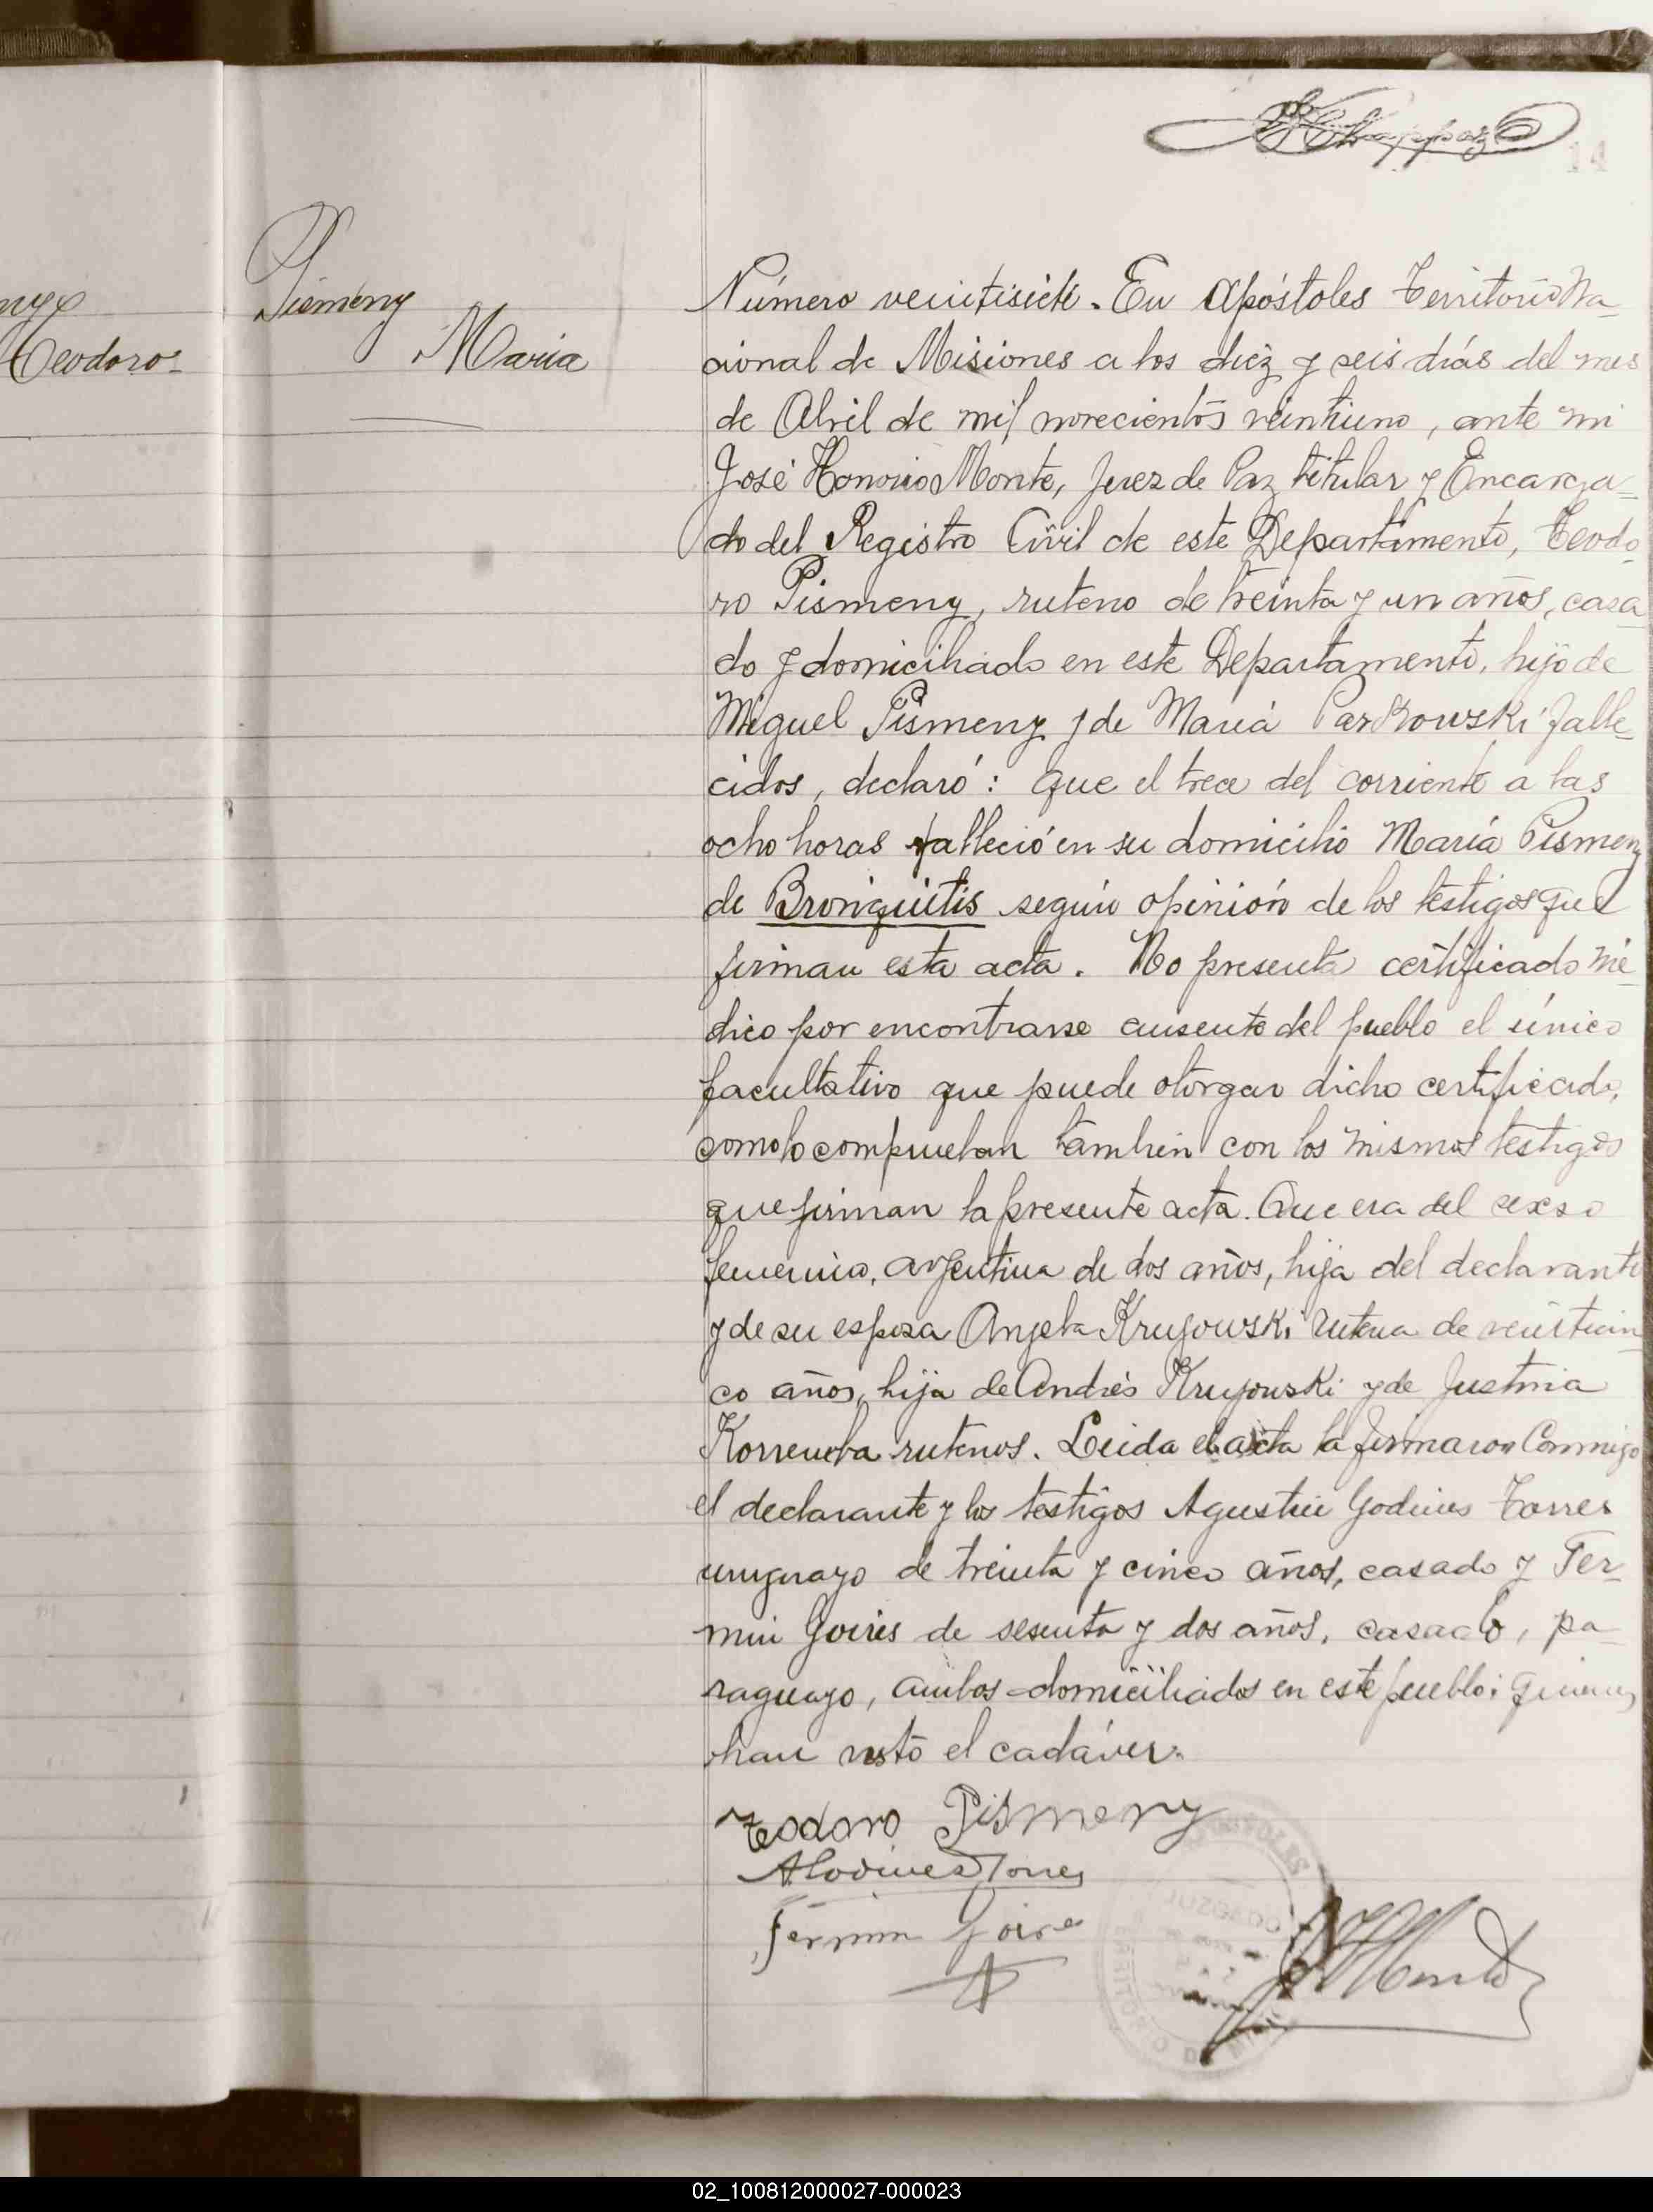 14
nyx
Teodoro-
Pismeny
Maria
Número veintisiete. En Apóstoles Territorio Na-
cional de Misiones a los diez y seis diás del mes
de Abril de mil novecientos veintiuno, ante mi
José Honorio Monte, Juez de Paz titular y Encarga-
do del Registro Civil de este Departamento, Teodo-
ro Pismeny, ruteno de treinta y un años, casa-
do y domiciliado en este Departamento, hijo de
Miguel Pismeny y de Mariá Parkowski falle-
cidos, declaró: que el trece del corriente a las
ocho horas falleció en su domicilio María Pismeny
de Bronquitis según opinión de los testigos que
firman esta acta. No presenta certificado mé-
dico por encontrarse ausente del pueblo el único
facultativo que puede otorgar dicho certificado,
como lo comprueban tambien con los mismos testigos
que firman la presente acta. Que era del sexso
femenino, argentina de dos años, hija del declarante
y de su esposa Angela Krujowski rutena de veinticin-
co años, hija de Andrés Krujowski y de Justina
rutenos. Leida el acta la firmaron Conmigo
el declarante y los testigos Agustin Godines Torres
uruguayo de treinta y cinco años, casado y Fer-
min Goires de sesenta y dos años, casado, pa-
raguayo, ambos domiciliados en este pueblo; quienes
han visto el cadáver.
Teodoro Pismeny
AGodines Torres
Fermin Goires
02_100812000027-000023